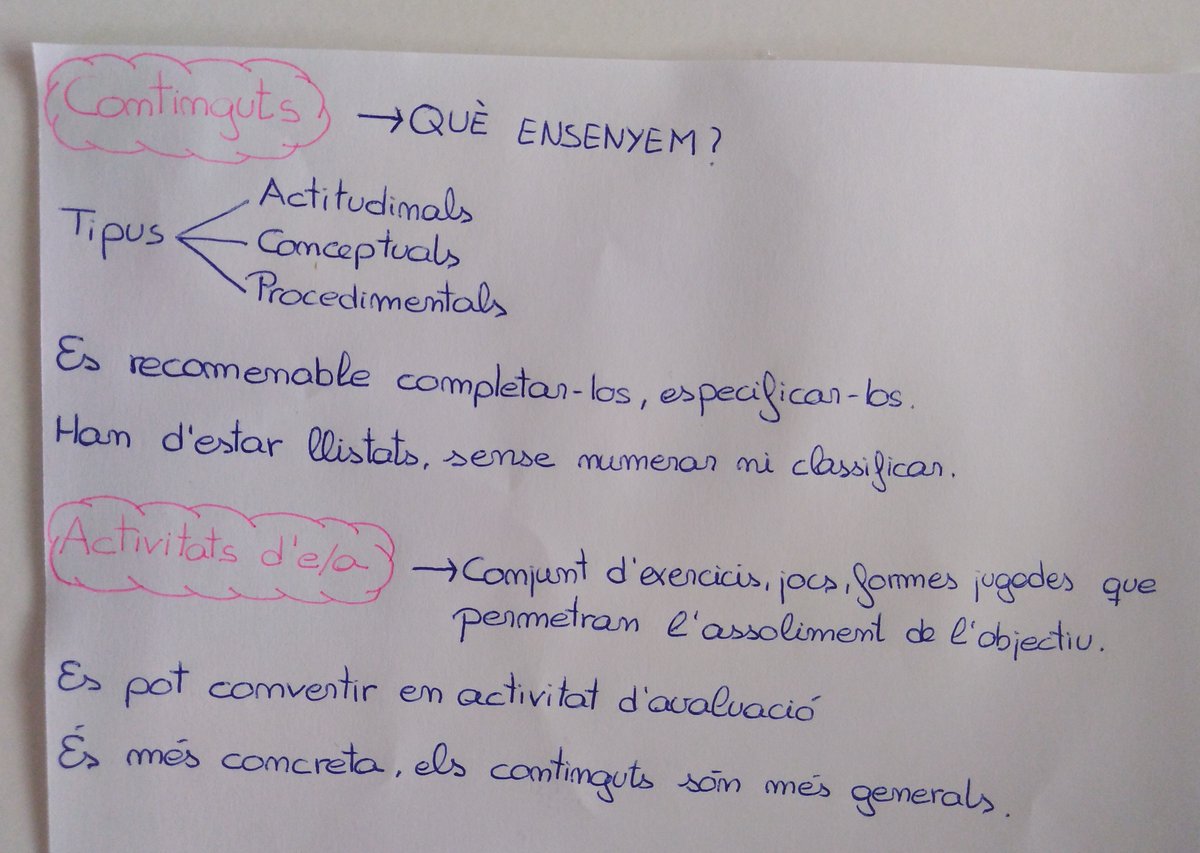 Continguts → QUÈ ENSENYEM?
Actitudinals
Tipus Conceptuals
Procedimentals
Es recomenable completar-los, especificar-los.
Han d'estar llistats, sense numerar ni classificar.
Activitats d'e/a → Conjunt d'exercicis, jocs, formes jugades que
permetran l'assoliment de l'objectiu.
Es pot convertir en activitat d'avaluació
És més concreta, els continguts són més generals.